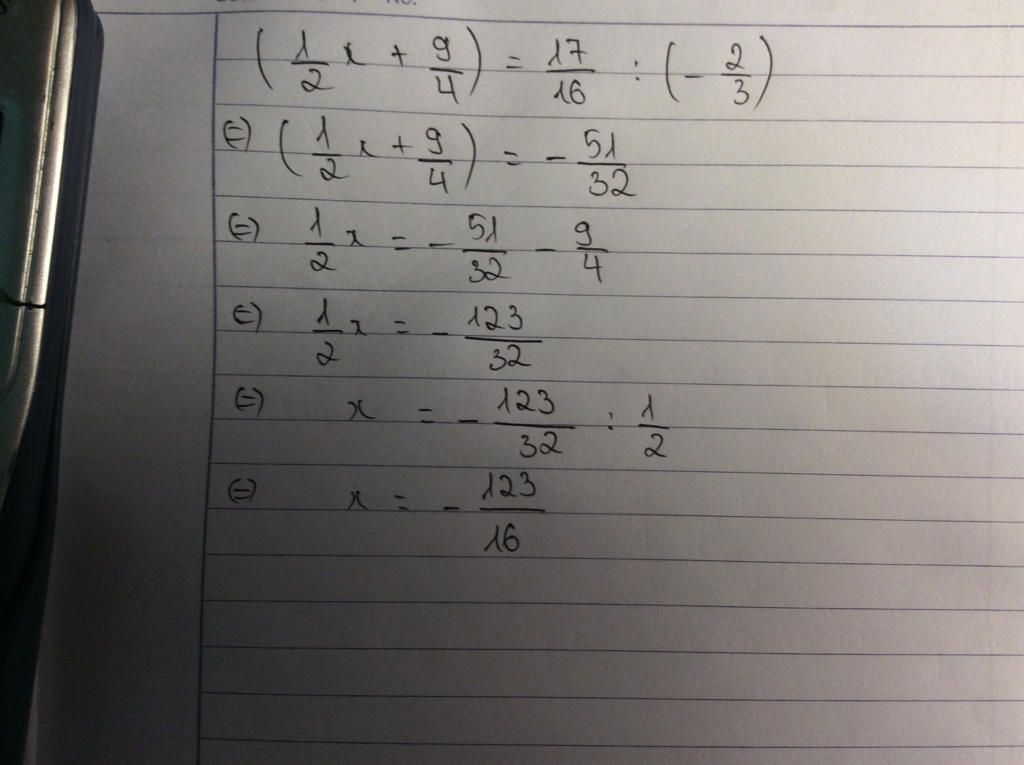 (1/2 x + 9/4) = 17/16 : (- 2/3)
(=) (1/2 x + 9/4) = - 51/32
(=) 1/2 x = - 51/32 - 9/4
(=) 1/2 x = - 123/32
(=) x = - 123/32 : 1/2
(=) x = - 123/16